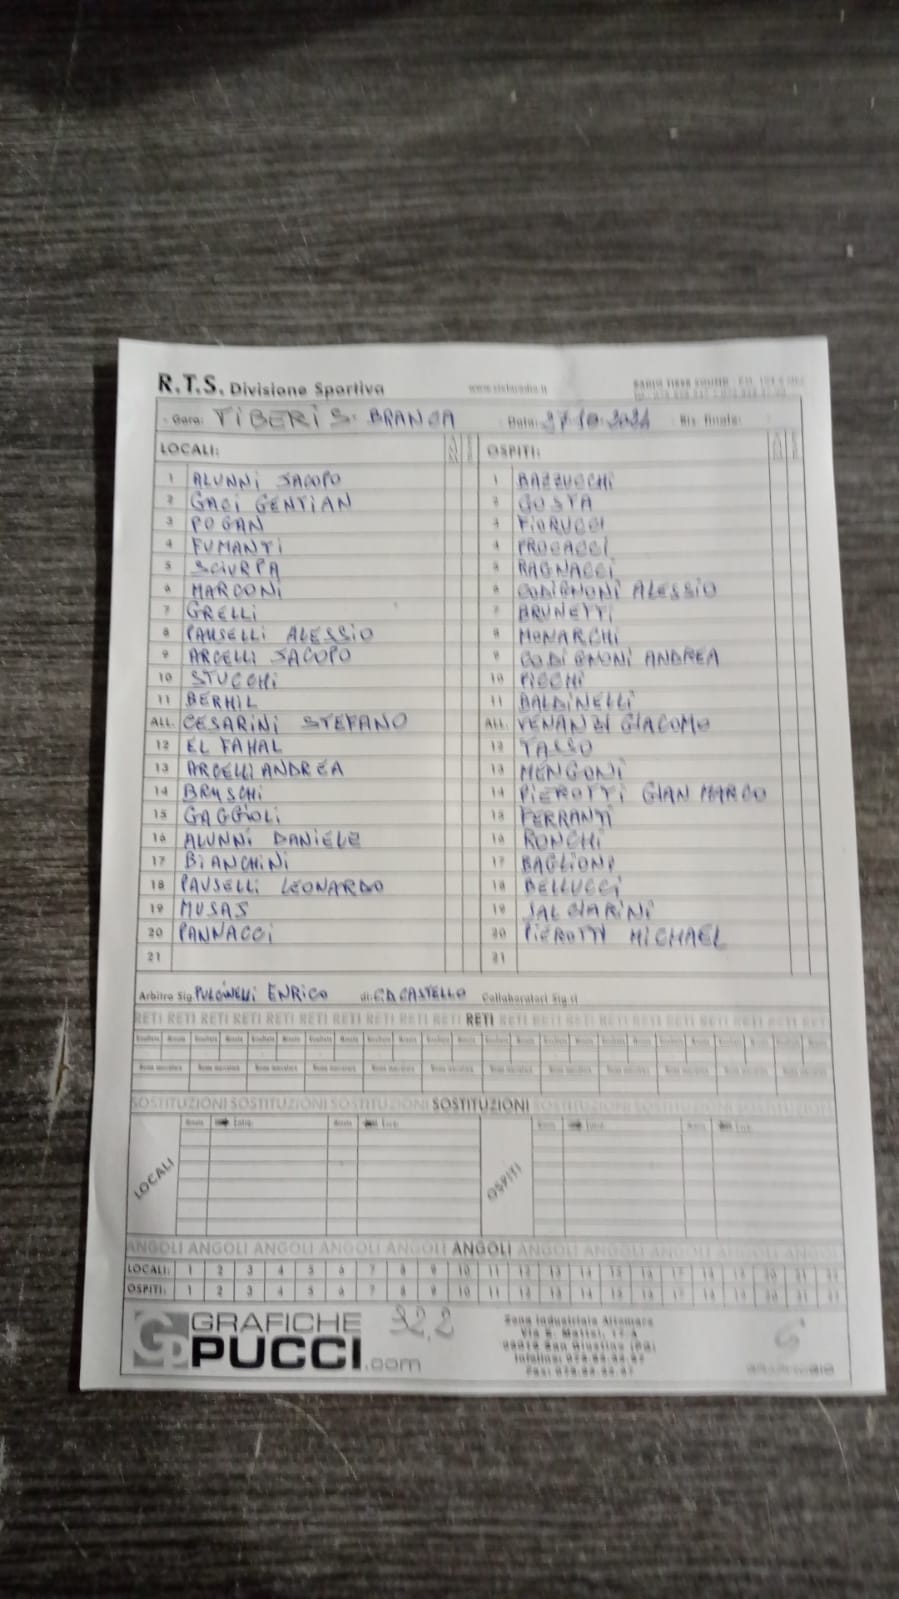 R.T.S. Divisione Sportiva
Gara: TIBERIS - BRANCA Data: 27-10-2024 Ris. finale:
LOCALI: OSPITI:
1 ALUNNI JACOPO 1 BAZZUCCHI
2 GACI GENTIAN 2 COSTA
3 POGAN 3 FIORUCCI
4 FUMANTI 4 PROCACCI
5 SCIURPA 5 RAGNACCI
6 MARCONI 6 CODIGNONI ALESSIO
7 GRELLI 7 BRUNETTI
8 PAUSELLI ALESSIO 8 MONARCHI
9 ARCELLI JACOPO 9 CODIGNONI ANDREA
10 STUCCHI 10 PICCHI
11 BERHIL 11 BALDINELLI
ALL. CESARINI STEFANO ALL. VENANZI GIACOMO
12 EL FAHAL 12 TASSO
13 ARCELLI ANDREA 13 MENGONI
14 BRUSCHI 14 PIEROTTI GIAN MARCO
15 GAGGIOLI 15 FERRANTI
16 ALUNNI DANIELE 16 RONCHI
17 BIANCHINI 17 BAGLIONI
18 PAUSELLI LEONARDO 18 BELLUCCI
19 MUSAJ 19 SALCIARINI
20 PANNACCI 20 PIEROTTI MICHAEL
21 21
Arbitro Sig. PULCINELLI ENRICO di: C.D. CASTELLO Collaboratori Sig.ri
RETI RETI RETI RETI RETI RETI RETI RETI RETI RETI RETI RETI RETI RETI RETI RETI RETI RETI RETI RETI RETI
SOSTITUZIONI SOSTITUZIONI SOSTITUZIONI SOSTITUZIONI SOSTITUZIONI SOSTITUZIONI SOSTITUZIONI
LOCALI OSPITI
ANGOLI ANGOLI ANGOLI ANGOLI ANGOLI ANGOLI ANGOLI ANGOLI ANGOLI ANGOLI ANGOLI
LOCALI: 1 2 3 4 5 6 7 8 9 10 11 12 13 14 15 16 17 18 19 20 21 22
OSPITI: 1 2 3 4 5 6 7 8 9 10 11 12 13 14 15 16 17 18 19 20 21 22
GRAFICHE
PUCCI.com
Zona Industriale Altomare